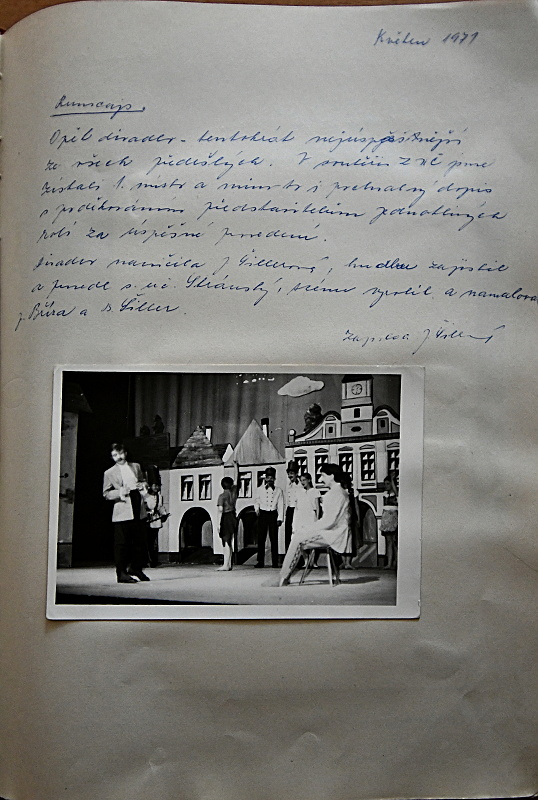 Květen 1971
Rumcajs.
Opět divadlo - tentokrát nejúspěšnější
ze všech předešlých. V soutěži ZUČ jsme
získali 1. místo a mimo to i pochvalný dopis
s poděkováním představitelům jednotlivých
rolí za úspěšné provedení.
Divadlo nacvičila J Šillerová, hudbu zajistil
a provedl s. uč. Stránský, scénu vyrobil a namaloval
p. Bůza a Šiller.
Zapsala J Šillerová